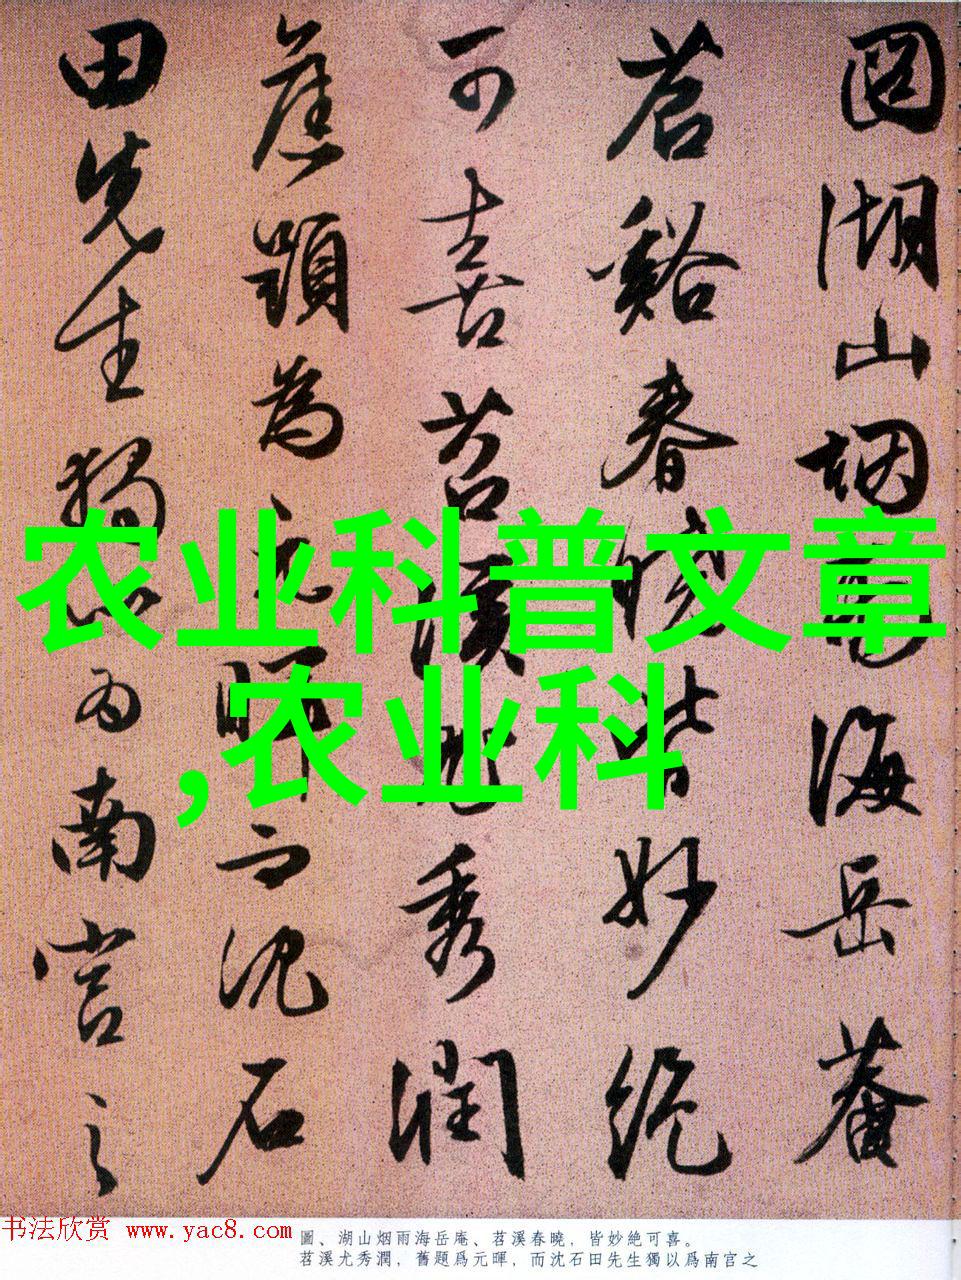 圖湖山烟雨海岳菴
苕谿春曉皆妙絶
可喜苕溪尤秀潤
舊題為元暉而沈石
田先生獨以為南宫之
农业科普文章
,农业科
书法欣赏 www.yac8.com
圖、湖山烟雨海岳庵、苕溪春曉，皆妙絶可喜。
苕溪尤秀潤，舊題爲元暉，而沈石田先生獨以爲南宫之